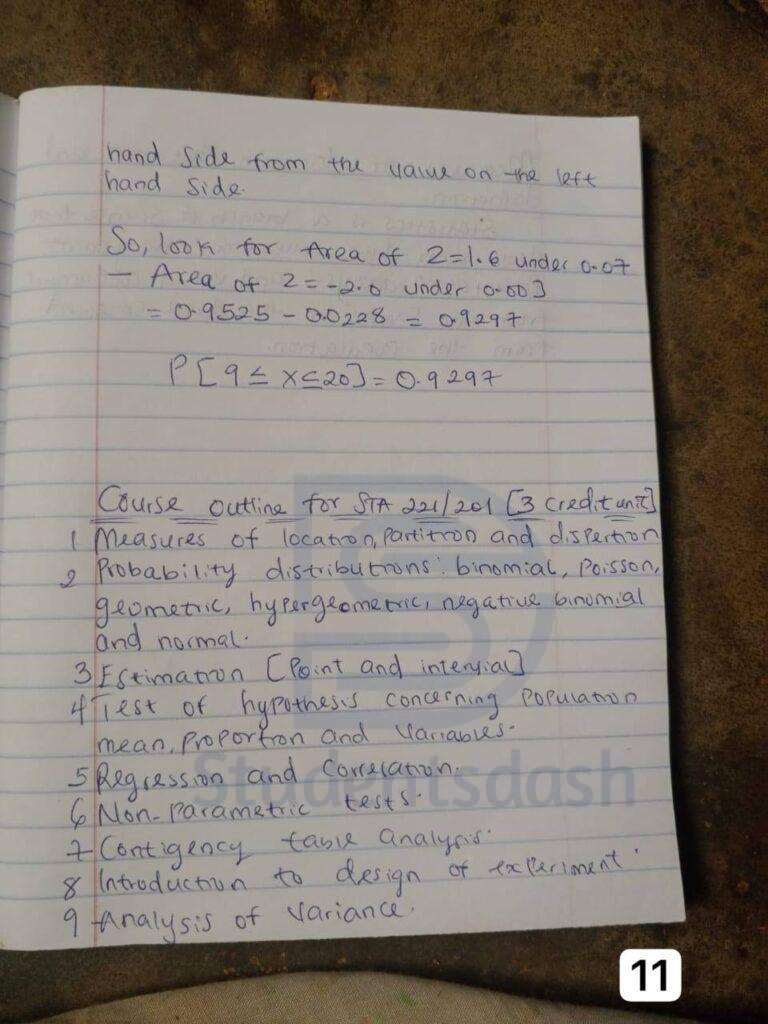 hand side from the value on the left
hand side.
So, look for Area of Z=1.6 under 0.07
- Area of Z=-2.0 under 0.00]
= 0.9525 - 0.0228 = 0.9297
P[9 ≤ X ≤ 20] = 0.9297
Course outline for STA 221/201 [3 credit unit]
1 Measures of location, Partition and dispertion
2 Probability distributions: binomial, Poisson,
geometric, hypergeometric, negative binomial
and normal.
3 Estimation [Point and intervial]
4 Test of hypothesis concerning Population
mean, Proportion and Variables.
5 Regression and Correlation.
6 Non-Parametric tests.
7 Contigency table analysis.
8 Introduction to design of experiment.
9 Analysis of Variance.
Studentsdash
11